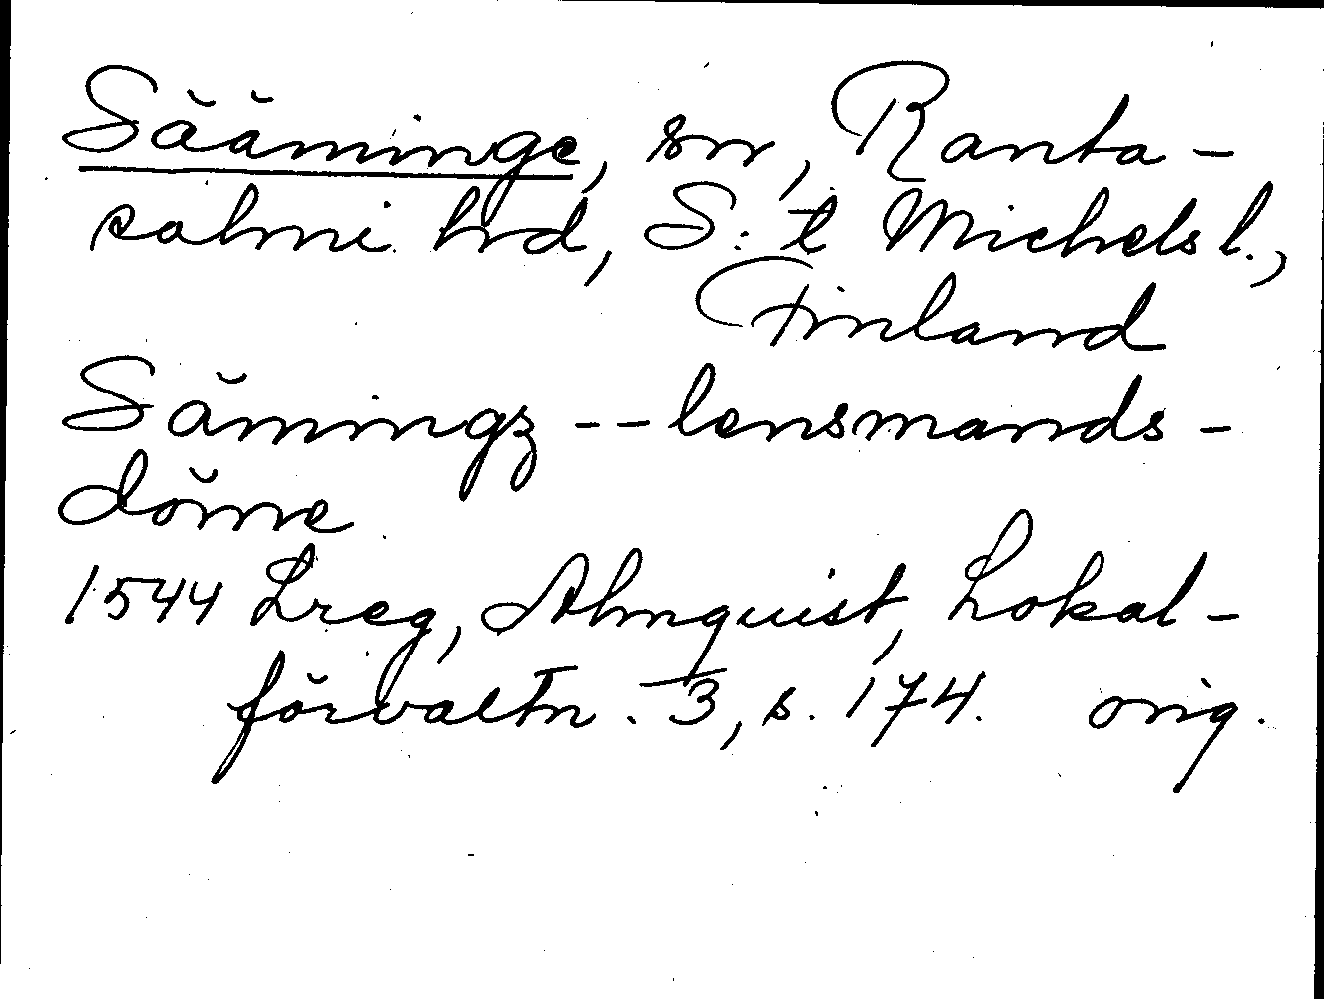 Sääminge, sn, Ranta-
salmi hrd, S:t Michels l.,
Finland
Sämingz -- lensmands-
döme
1544 Lreg, Almquist, Lokal-
förvaltn. 3, s. 174. orig.